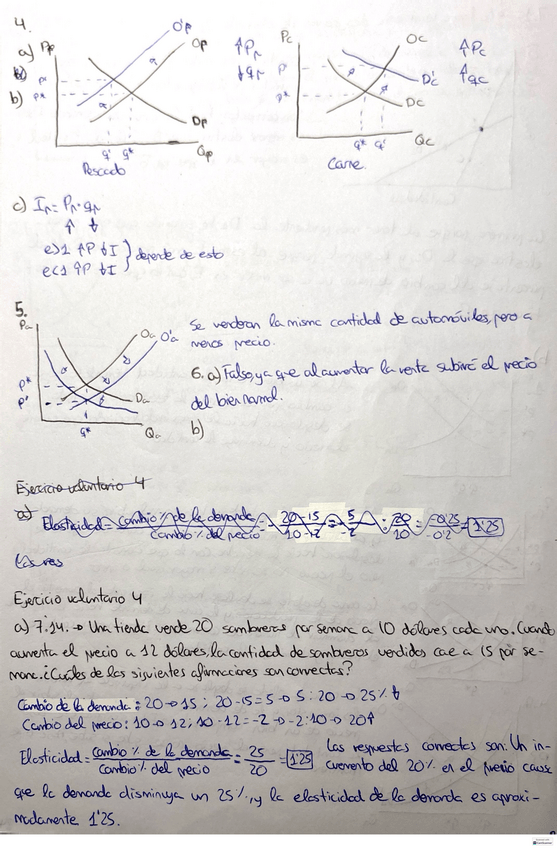 4.
a) Pp O'p Op Dp Qp
b) P' P* q' q* Pescado
↑Pp ↓qp
Pc Oc D'c Dc Qc
P' P* q* q' Carne
↑Pc ↑qc
c) Ip = Pp · qp
↑ ↓
e>1 ↑P ↓I
e<1 ↑P ↓I } depende de esto
5.
Pa Oa O'a Da Qa
P* P' q*
Se venderan la misma cantidad de automóviles, pero a
menos precio.
6. a) Falso, ya que al aumentar la renta subirá el precio
del bien normal.
b)
Ejercicio voluntario 4
a) Elasticidad = cambio % de la demanda / cambio % del precio = 20-15 / 10-12 = 5 / -2 : 20 / 10 = -0'25 / -0'2 = 1'25
Las res
Ejercicio voluntario 4
a) 7.14. → Una tienda vende 20 sombreros por semana a 10 dólares cada uno. Cuando
aumenta el precio a 12 dólares, la cantidad de sombreros vendidos cae a 15 por se-
mana. ¿Cuáles de las siguientes afirmaciones son correctas?
Cambio de la demanda: 20 → 15 ; 20-15 = 5 → 5 : 20 → 25% ↓
Cambio del precio: 10 → 12; 10-12 = -2 → -2:10 → 20↑
Elasticidad = cambio % de la demanda / cambio % del precio = 25 / 20 = 1'25 Las respuestas correctas son: Un in-
cremento del 20% en el precio causa
que la demanda disminuya un 25%, y la elasticidad de la demanda es aproxi-
madamente 1'25.